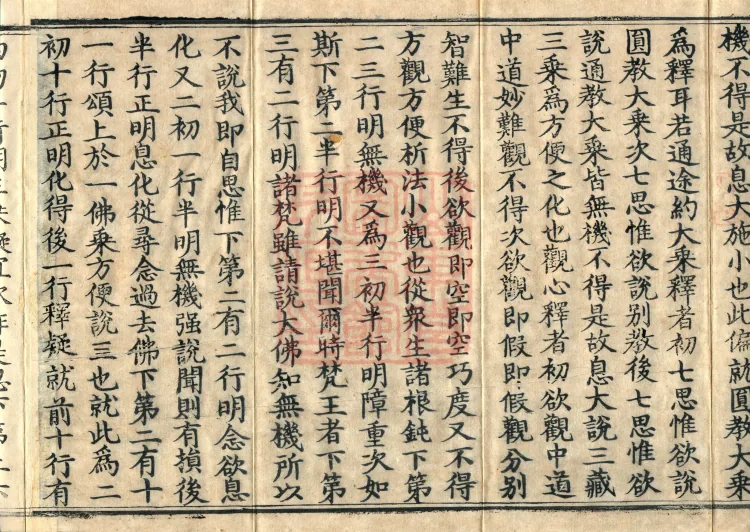 機不得是故息大施小也此偏就圓教大乗
爲釋耳若通途約大乗釋者初七思惟欲說
圓教大乗次七思惟欲說別教後七思惟欲
說通教大乗皆無機不得是故息大說三藏
三乗爲方便之化也觀心釋者初欲觀中道
中道妙難觀不得次欲觀即假即假觀分別
智難生不得後欲觀即空即空巧度又不得
方觀方便析法小觀也從衆生諸根鈍下第
二三行明無機又爲三初半行明障重次如
斯下第二半行明不堪聞爾時梵王者下第
三有二行明諸梵雖請說大佛知無機所以
不說我即自思惟下第二有二行明念欲息
化又二初一行半明無機强說聞則有損後
半行正明息化從尋念過去佛下第二有十
一行頌上於一佛乗方便說三也就此爲二
初十行正明化得後一行釋疑就前十行有